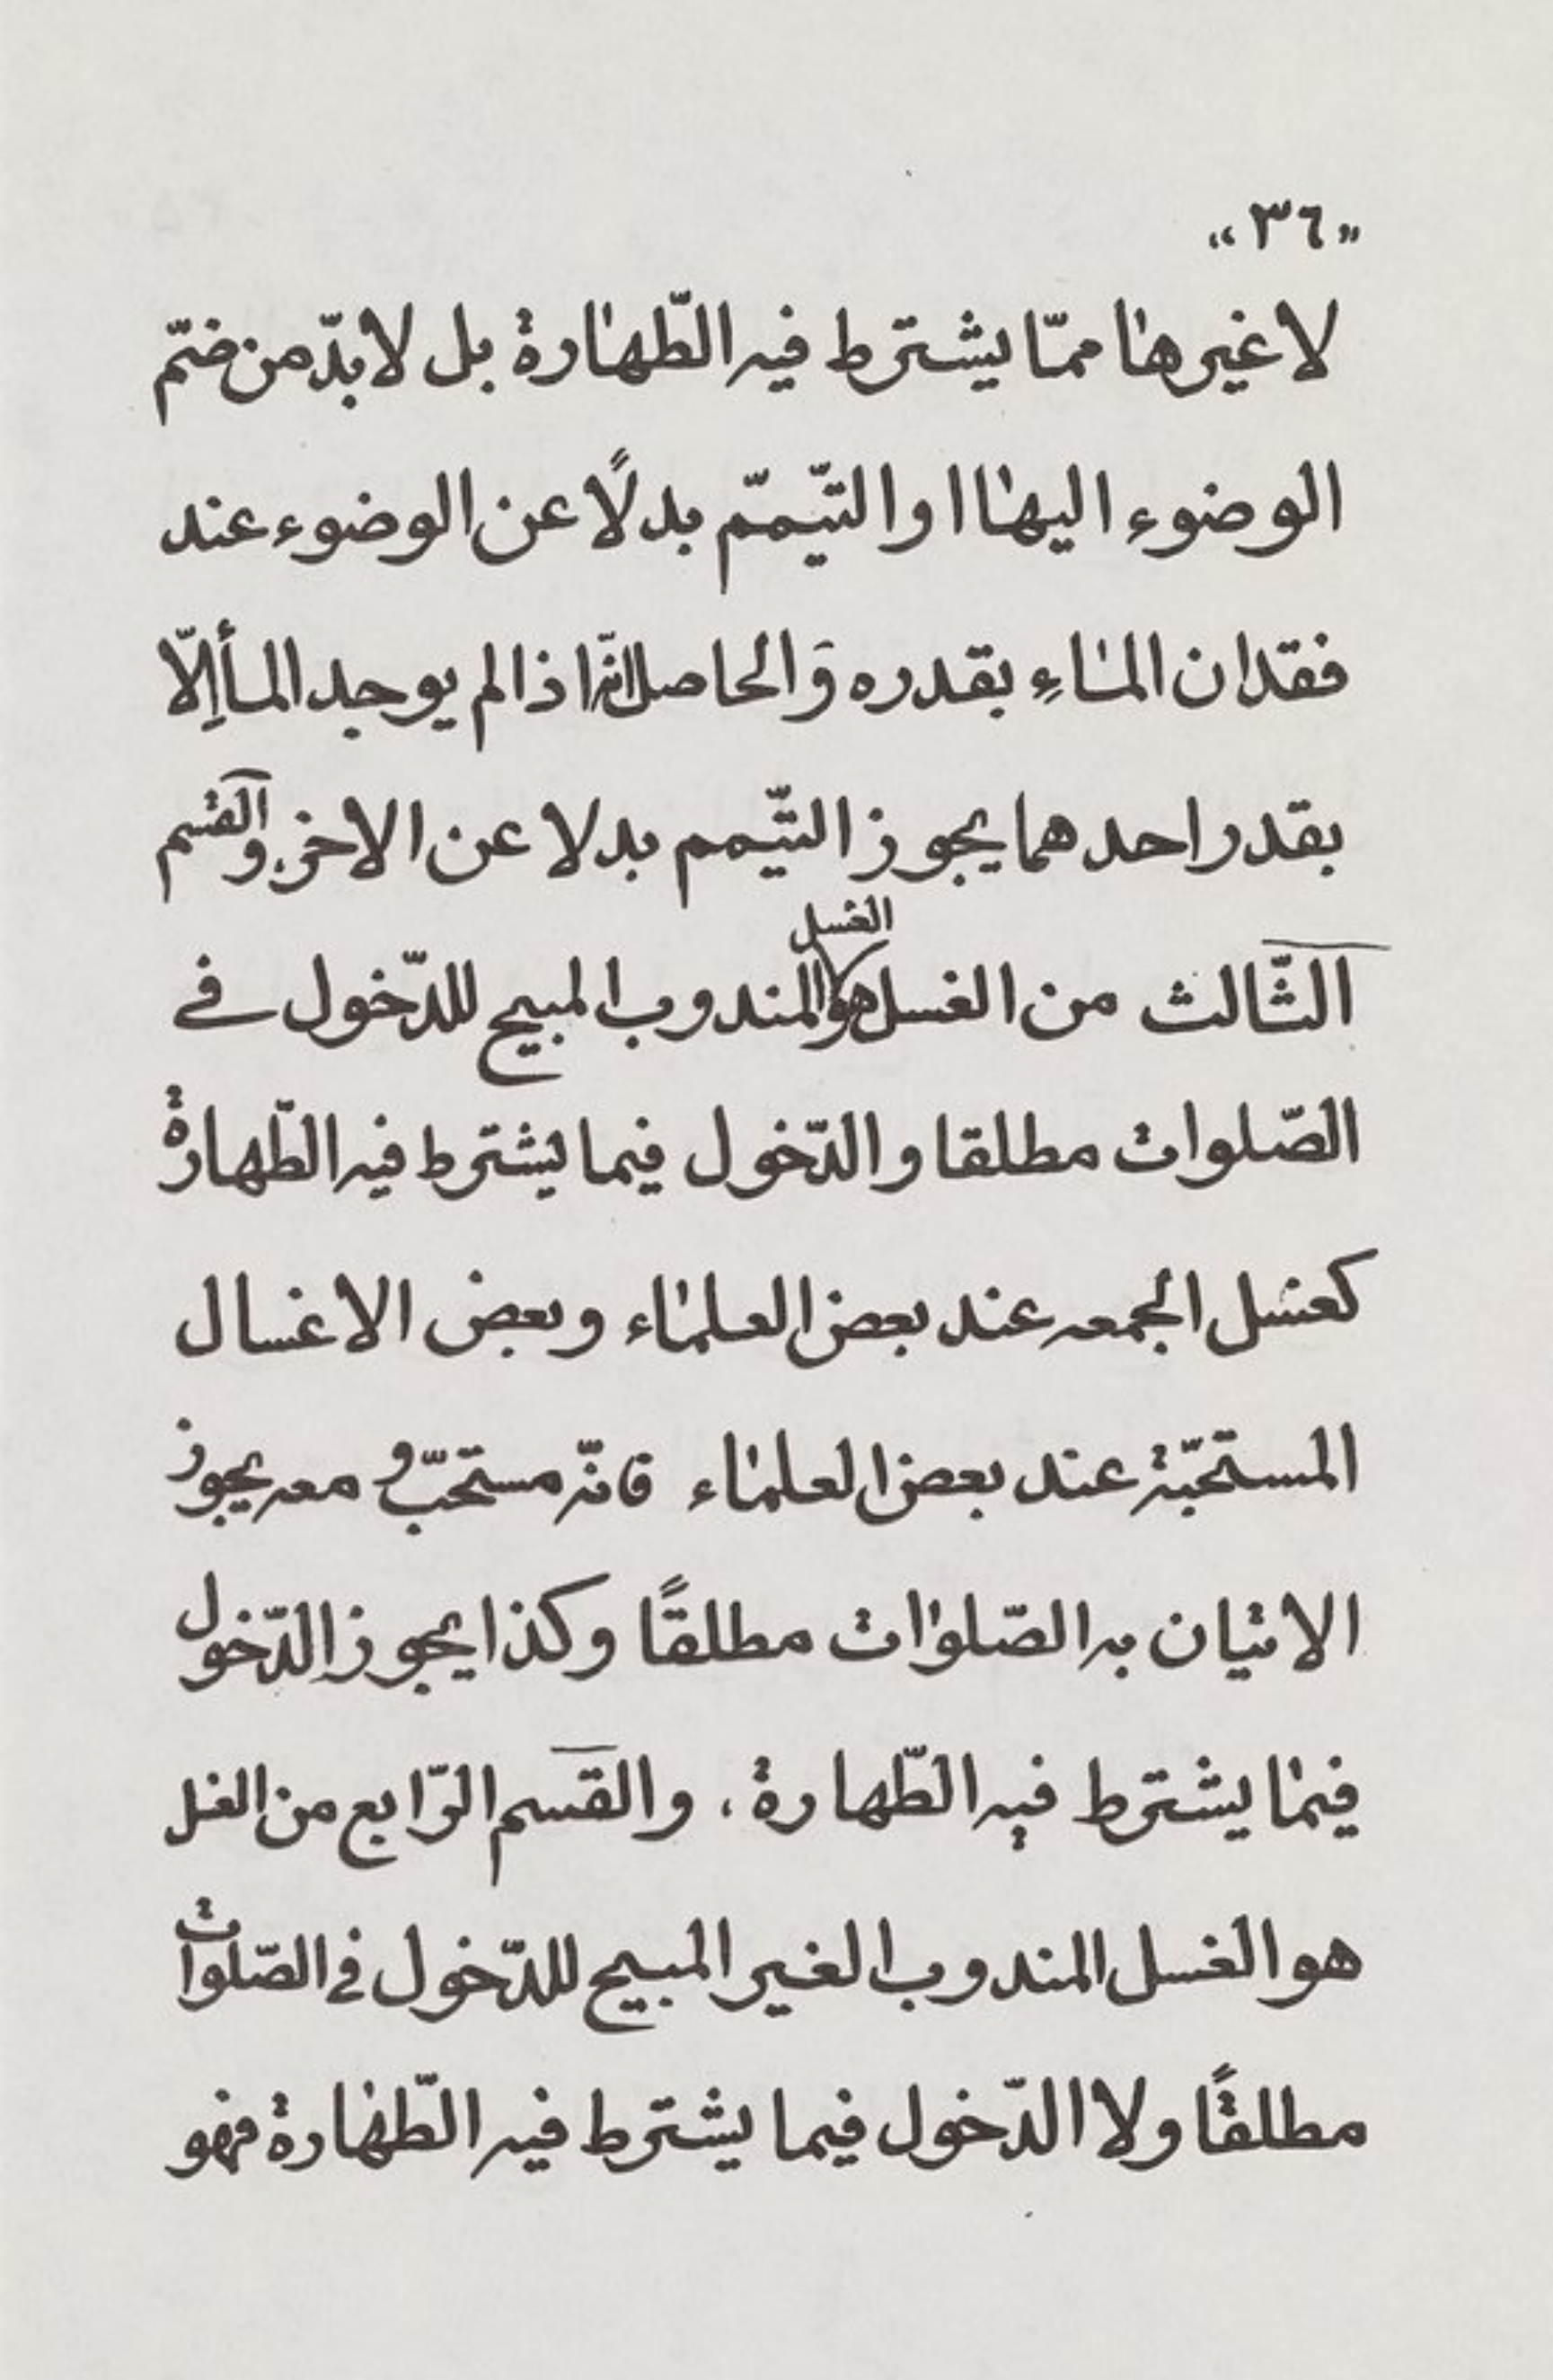 «٣٦»
لا غيرها ممّا يشترط فيه الطّهارة بل لا بدّ من ضمّ
الوضوء اليها او التّيمّم بدلًا عن الوضوء عند
فقدان الماءِ بقدره وَ الحاصل انّه اذا لم يوجد المأ إلّا
بقدر احدهما يجوز التّيمم بدلا عن الاخر والقسم
الثّالث من الغسل هو الغسل المندوب المبيح للدّخول في
الصّلوات مطلقا والدّخول فيما يشترط فيه الطّهارة
كغسل الجمعه عند بعض العلماء وبعض الاغسال
المستحبّة عند بعض العلماء فانّه مستحبّ و معه يجوز
الاتيان به الصّلوات مطلقًا وكذا يجوز الدّخول
فيما يشترط فيه الطّهارة ، والقسم الرّابع من الغسل
هو الغسل المندوب الغير المبيح للدّخول في الصّلوات
مطلقًا ولا الدّخول فيما يشترط فيه الطّهارة فهو